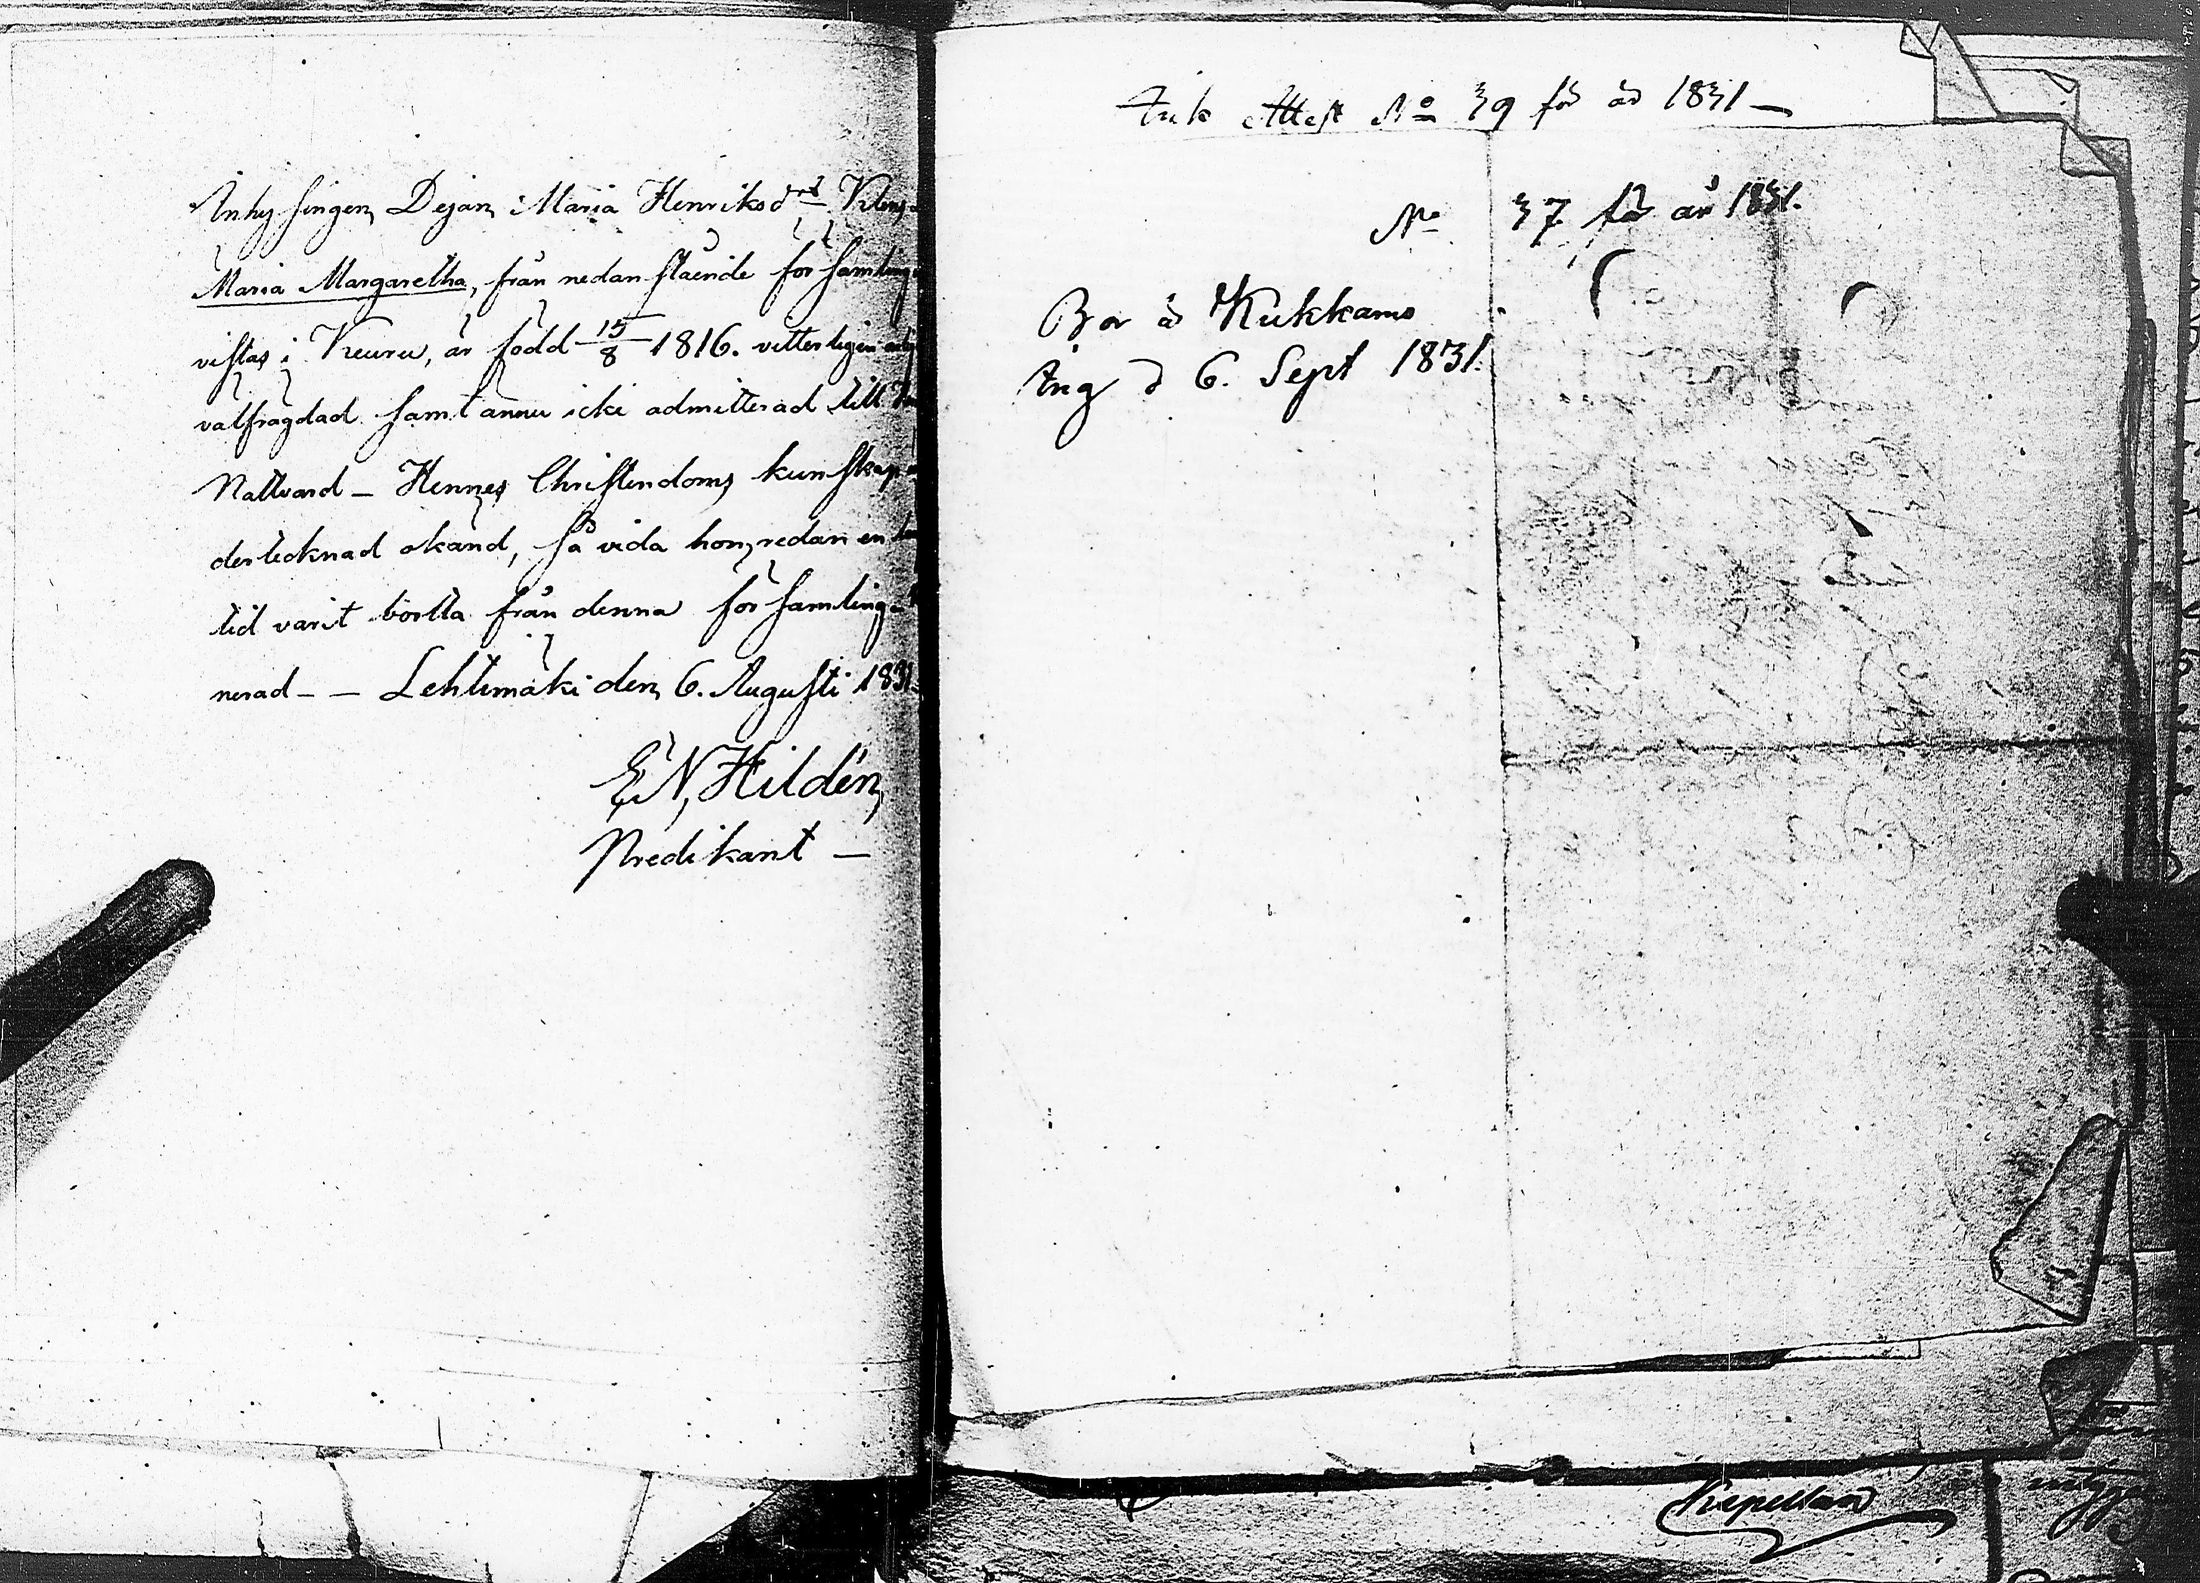 Inhysingen Dejan Maria Henriksdr
Maria Margaretha, från nedanstående församling
vistas i Keuru, är född 15/8 1816. vitterligen
valfrägdad samt ännu icke admitterad till
Nattvard - Hennes Christendoms kunskap
dertecknad okänd, så vida hon redan en
tid varit bortta från denna församling
nerad - - Lehtimäki den 6. Augusti 1831
E N Hildén
Predikant -
Attest No 39 för år 1831 -
No 37 för år 1831.
Bor å Kukkamo
Ing d 6. Sept 1831.